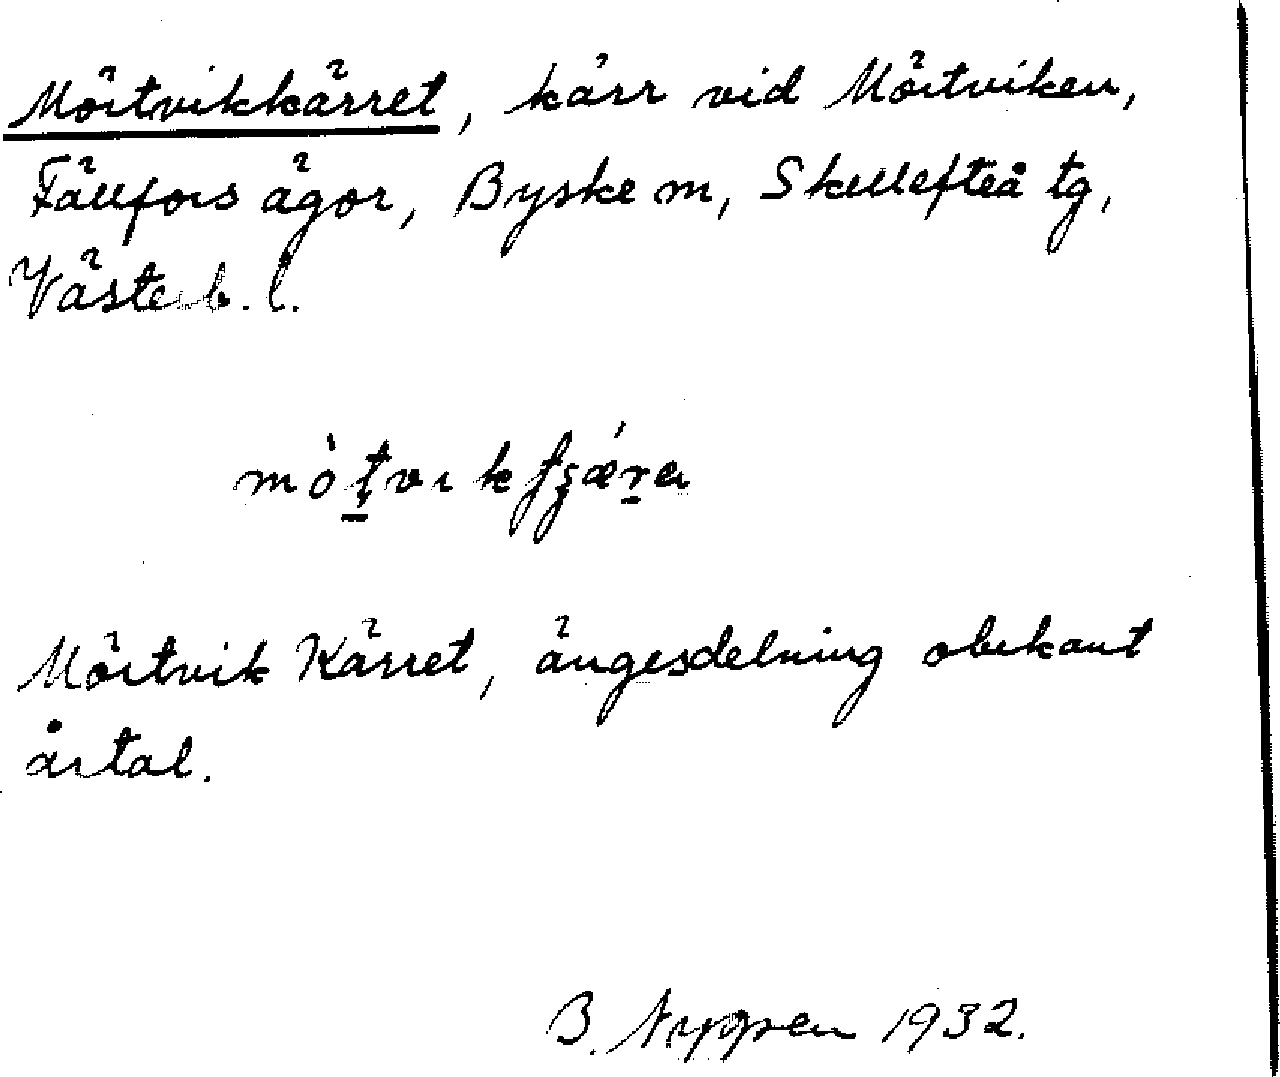 Mörtvikkärret, kärr vid Mörtviken,
Fällfors ägor, Byske m, Skellefteå tg,
Västerb. l.
Mörtvik Kärret, ängesdelning obekant
årtal.
B. Nygren 1932.